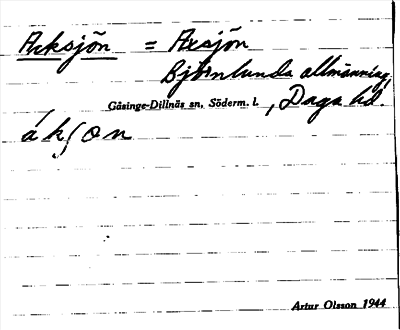 Arksjön = Axsjön
Björnlunda allmänning,
Gåsinge-Dillnäs sn, Söderm. l. , Daga hd.
ákʃon
Artur Olsson 1944